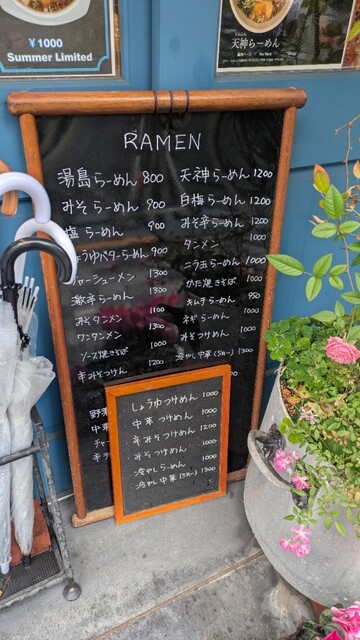 ¥1000
Summer Limited
天神らーめん
RAMEN
湯島らーめん 800
みそらーめん 900
塩らーめん 900
しょうゆバターらーめん 900
チャーシューメン 1300
激辛らーめん 1300
みそタンメン 1100
ワンタンメン 1300
ソース焼きそば 1000
辛みそつけ 1200
野菜
中華
チャー
辛チ
天神らーめん 1200
白梅らーめん 1200
みそ辛らーめん 1200
タンメン 1000
ニラ玉らーめん 1000
かた焼きそば 1000
キムチらーめん 950
ネギらーめん 1000
みそつけめん 1000
冷やし中華(5カ〜) 1300
しょうゆつけめん 1000
中華つけめん 1000
辛みそつけめん 1200
みそつけめん 1000
冷やしらーめん 1000
冷やし中華(5カ〜) 1300